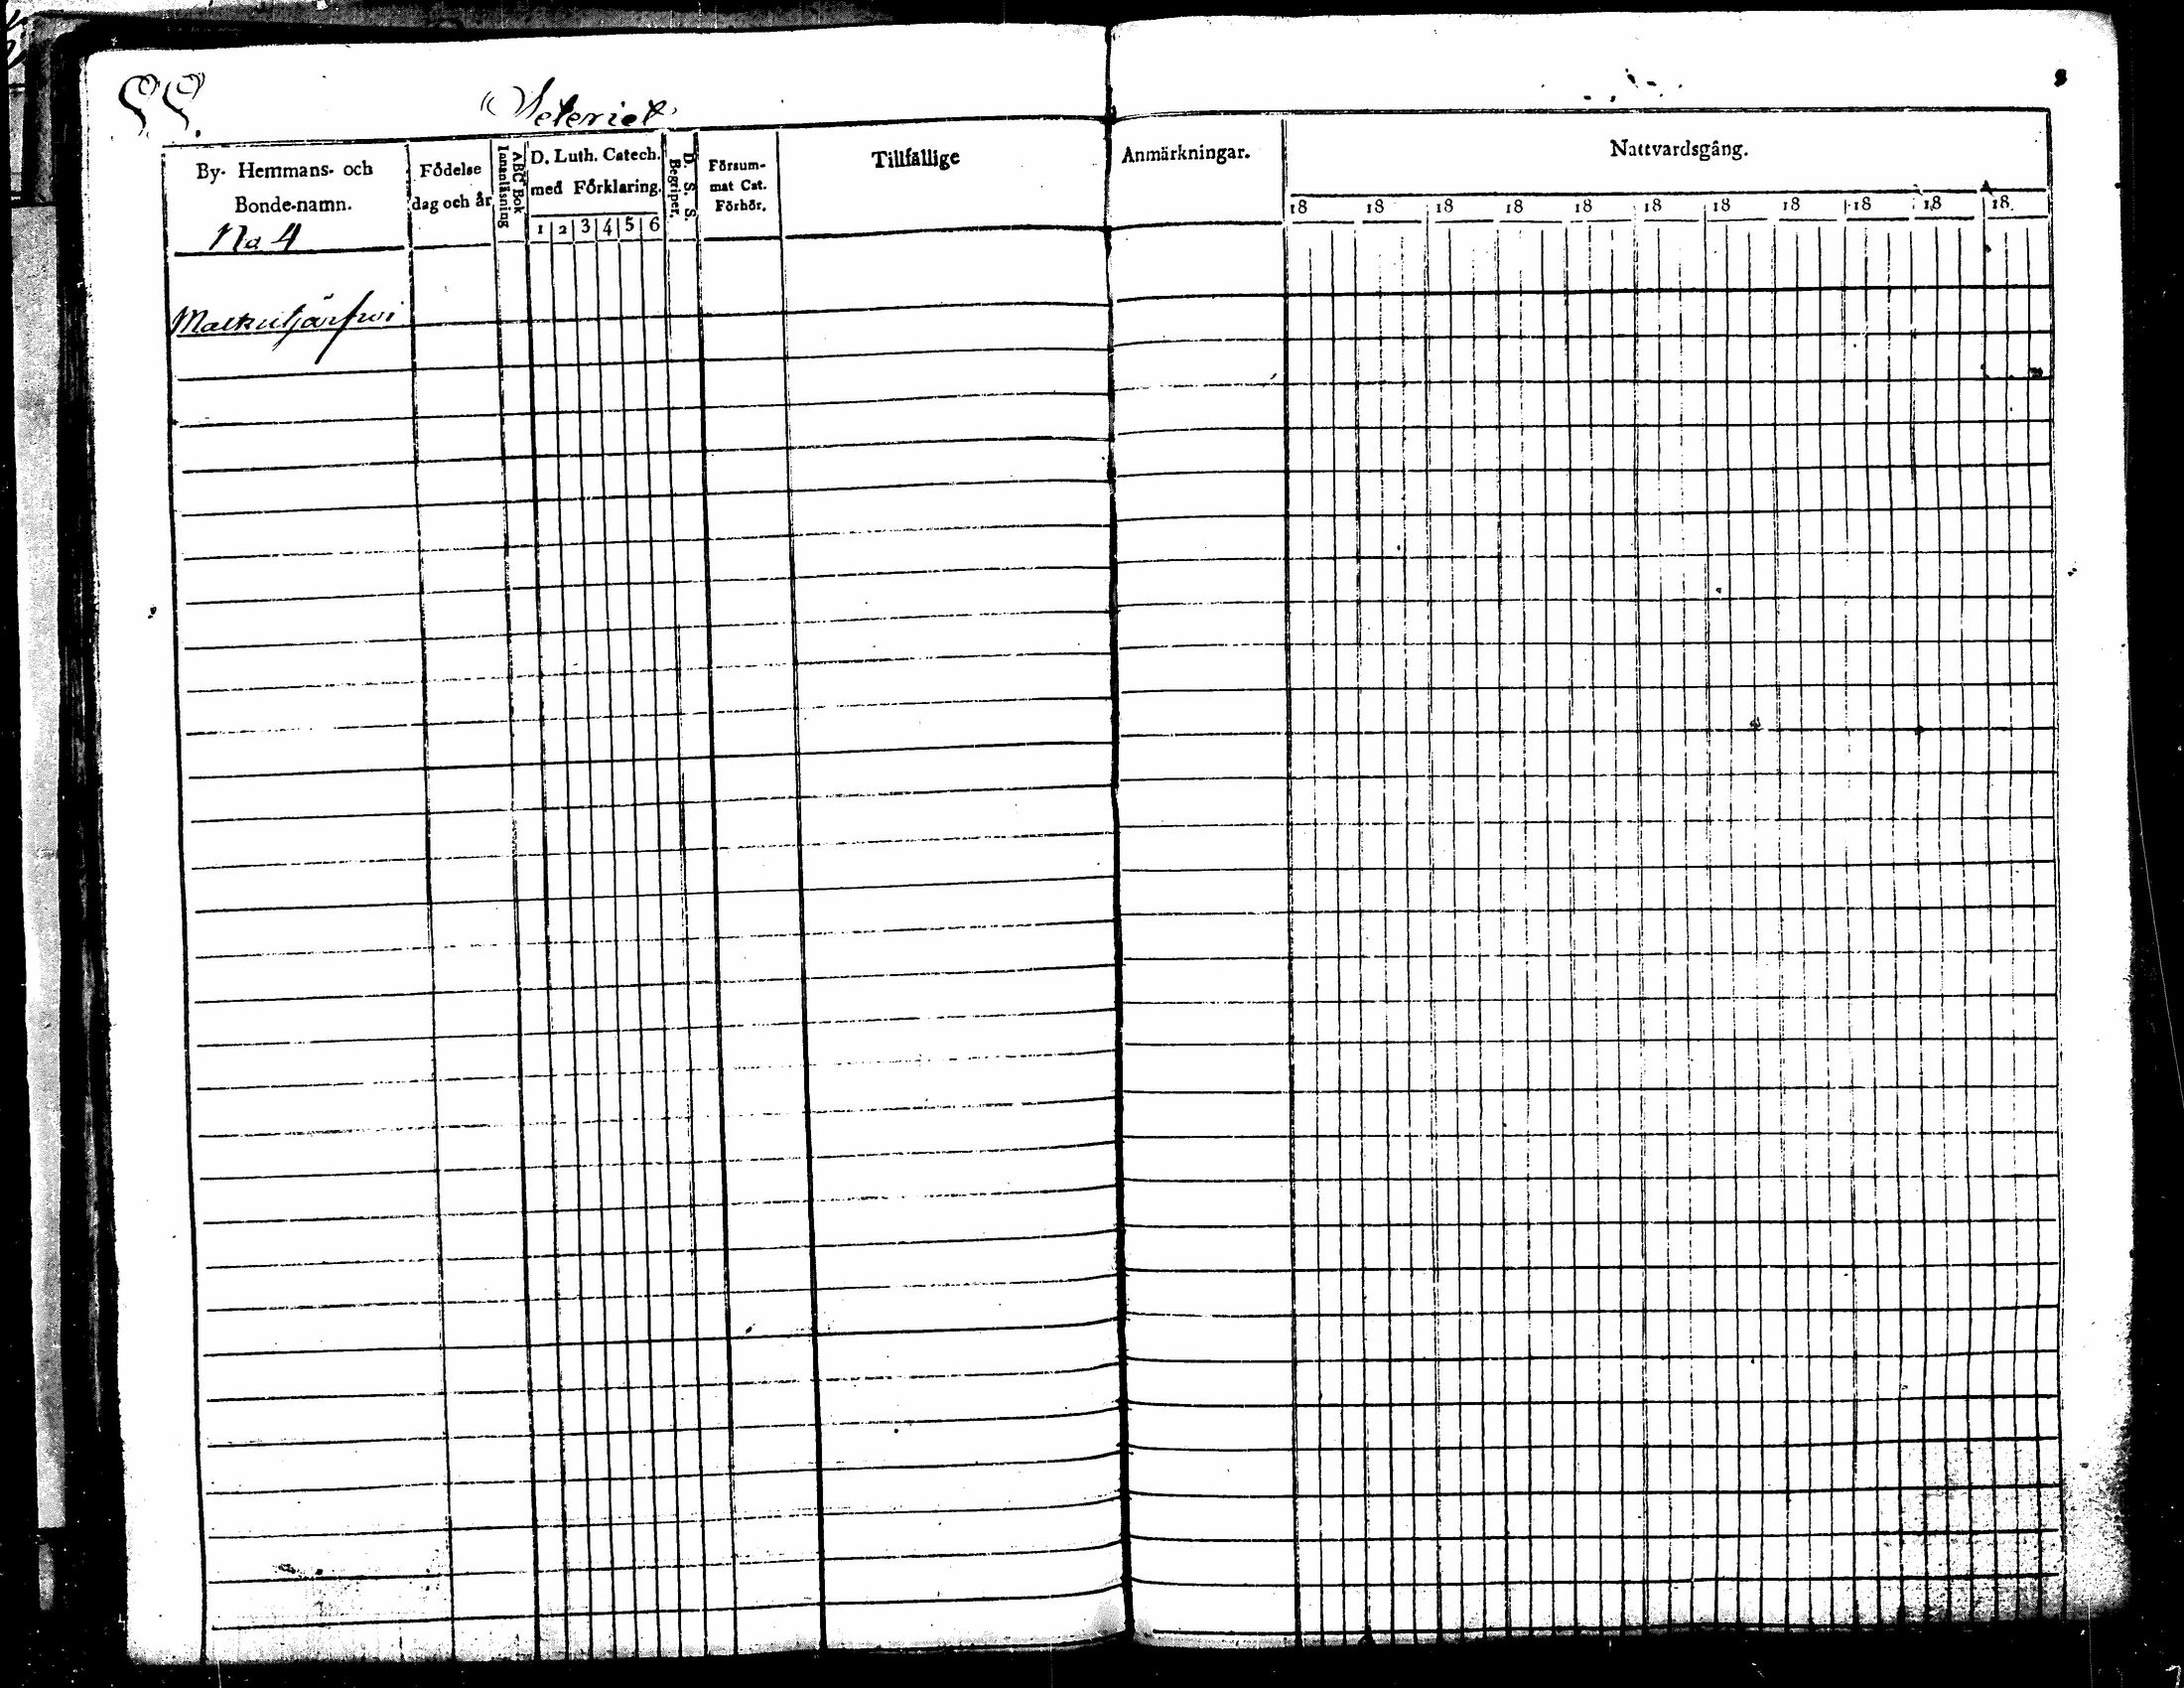 55.
Seteriet
By- Hemmans- och
Bonde-namn.
No 4
Födelse
dag och år
ABC Bok
Innanläsning
D. Luth. Catech.
med Förklaring.
1 2 3 4 5 6
D. S. S.
Begriper.
Försum-
mat Cat.
Förhör.
Tillfällige
Anmärkningar.
Nattvardsgång.
18 18 18 18 18 18 18 18 18 18 18
Matkusjärfwi